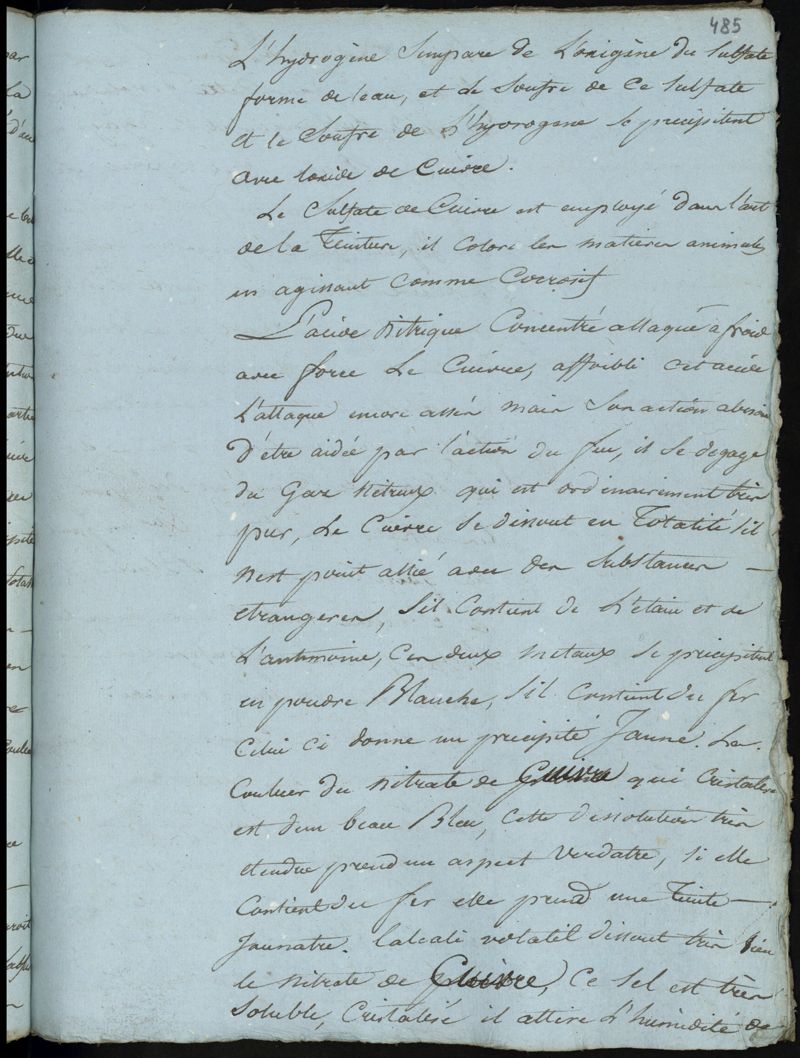 485
L'hydrogène s'empare de L'oxigène du Sulfate
forme de l'eau, et le Soufre de ce Sulfate
et le Soufre de l'hydrogene se précipitent
avec loxide de Cuivre.
Le Sulfate de Cuivre est employé dans l'art
de la Teinture, il colore les matieres animales
en agissant comme Corrosif
L'acide nitrique Concentré attaque a froid
avec force Le Cuivre, affoibli cet acide
L'attaque encore assés mais son action a besoin
D'être aidée par l'action du feu, il se degage
du Gaz nitreux qui est ordinairement trèes
pur, Le Cuivre se dissout en Totalité s'il
n'est point allié avec des Substances —
etrangeres, S'il Contient de L'etain et de
L'antimoine, Ces deux metaux se precipitent
en poudre Blanche, s'il contient du fer
Celui ci donne un precipité Jaune. La
Couleur du nitrate de Cuivre qui Cristalise
est d'un beau Bleu, Cette dissolution très
etendue prend un aspect verdatre, si elle
Contient du fer elle prend une Teinte —
Jaunatre. l'alcali volatil dissout très bien
le nitrate de Cuivre, Ce sel est très
Soluble, Cristalisé il attire l'humidité de